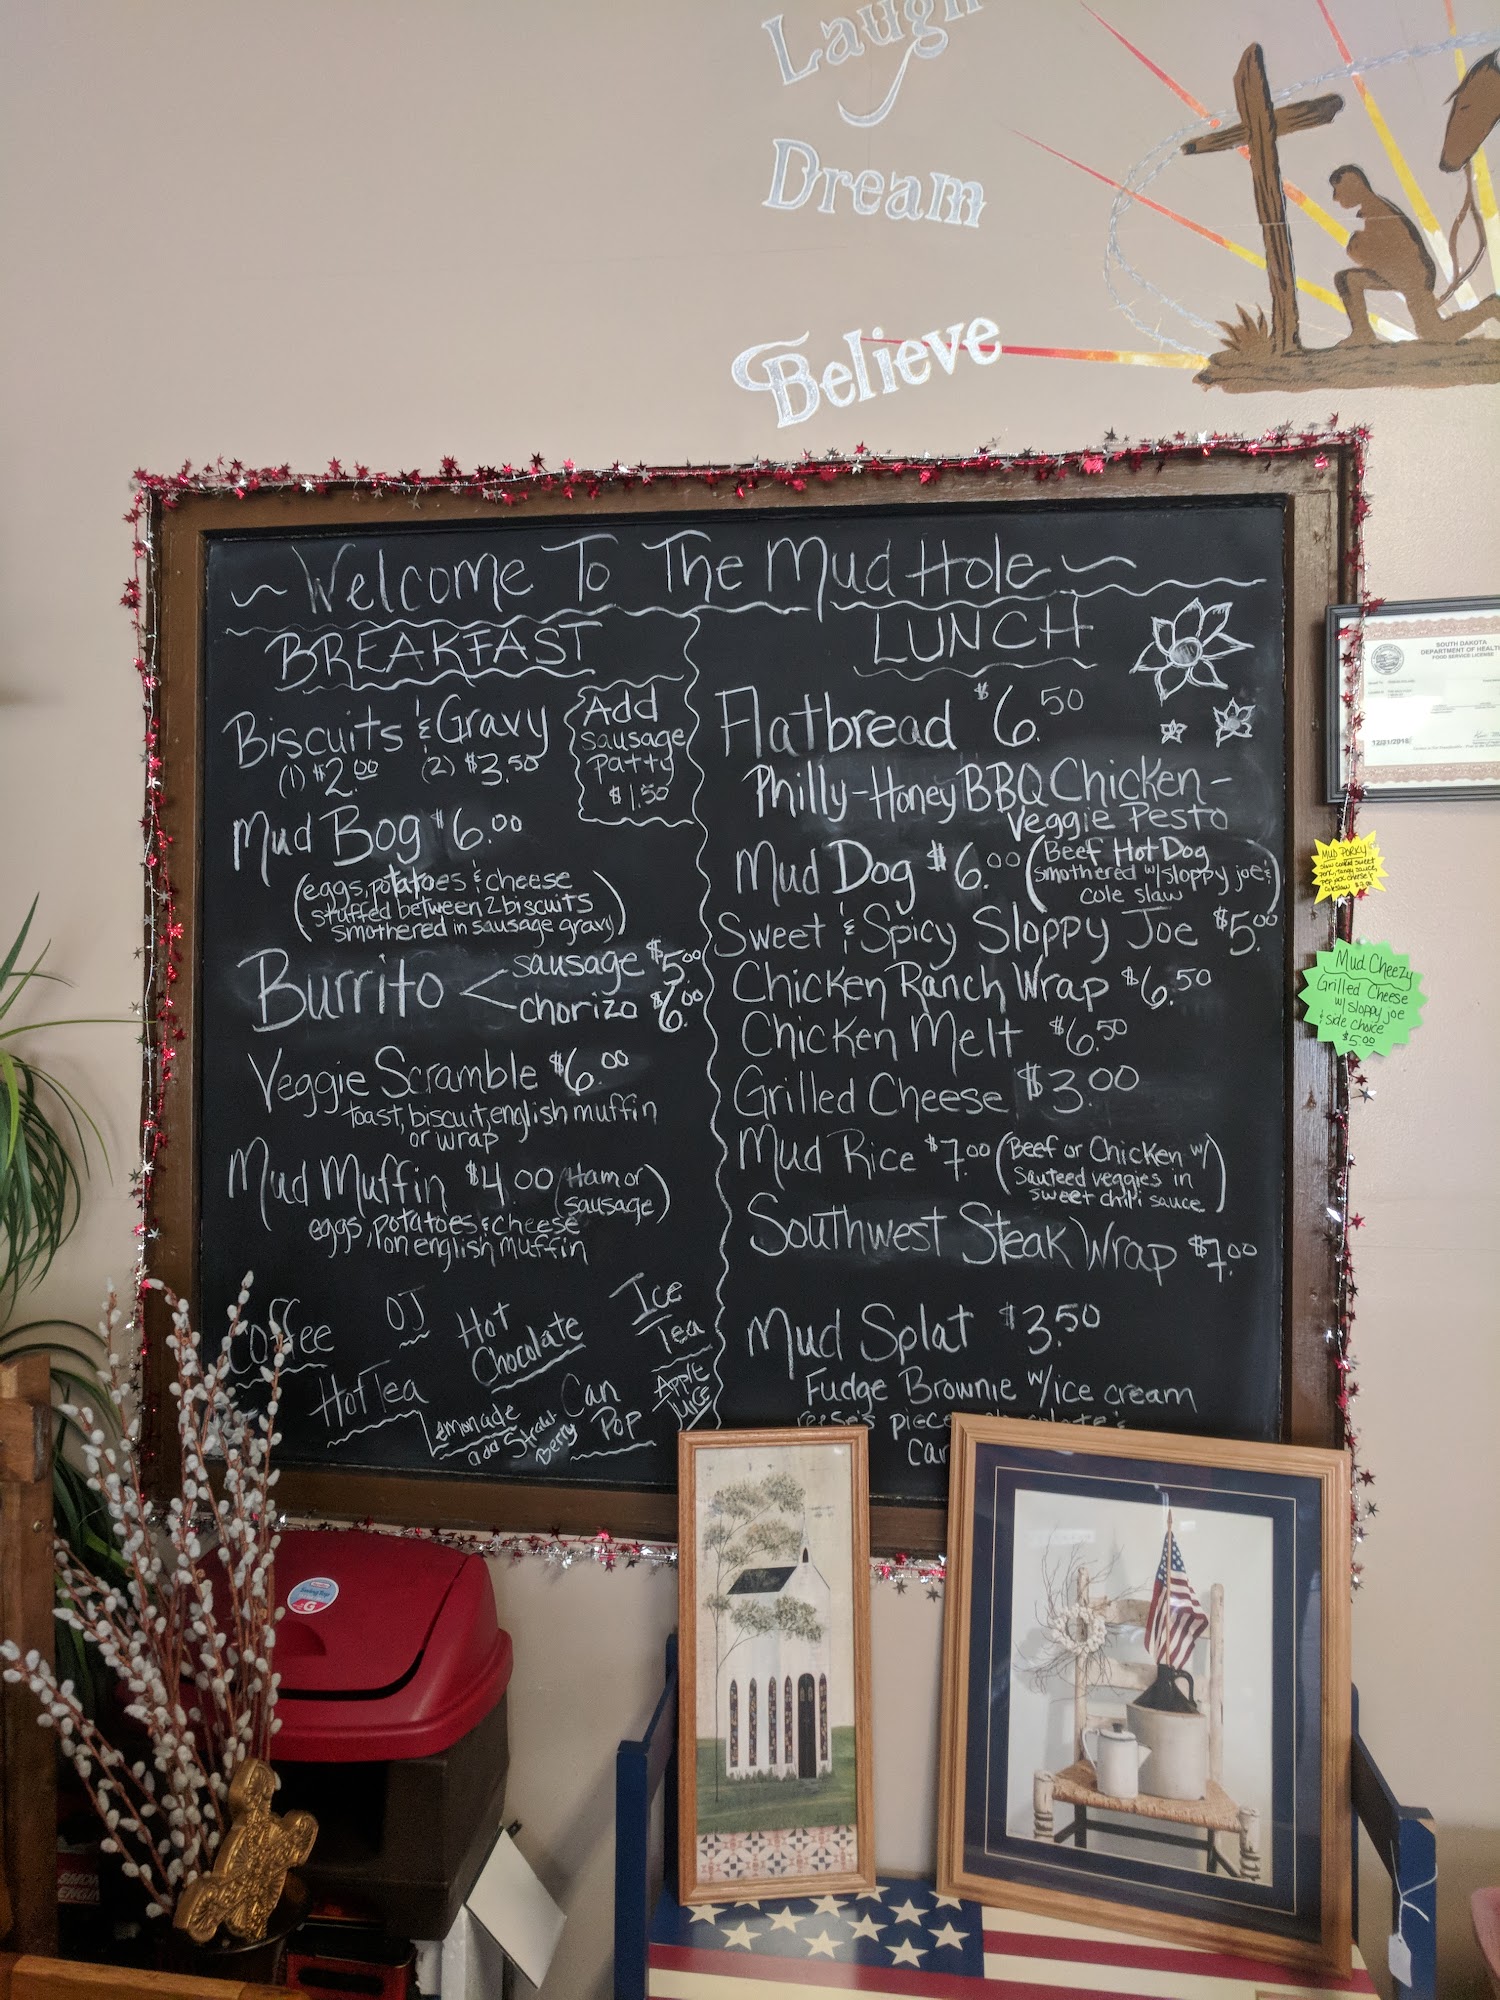 Laugh
Dream
Believe
~ Welcome To The Mud Hole ~
BREAKFAST
Biscuits & Gravy
(1) $2.00 (2) $3.50
Add
sausage
patty
$1.50
Mud Bog $6.00
(eggs, potatoes & cheese
stuffed between 2 biscuits
smothered in sausage gravy)
Burrito < sausage $5.00
chorizo $6.00
Veggie Scramble $6.00
toast, biscuit, english muffin
or wrap
Mud Muffin $4.00 (Ham or
sausage)
eggs, potatoes & cheese
on english muffin
Coffee
OJ
Hot
Chocolate
Ice
Tea
Hot Tea
Lemonade
add Straw-
Berry
Can
Pop
Apple
Juice
LUNCH
Flatbread $6.50
Philly - Honey BBQ Chicken -
Veggie Pesto
Mud Dog $6.00 (Beef Hot Dog
smothered w/ sloppy joe &
cole slaw)
Sweet & Spicy Sloppy Joe $5.00
Chicken Ranch Wrap $6.50
Chicken Melt $6.50
Grilled Cheese $3.00
Mud Rice $7.00 (Beef or Chicken w/
Sauteed veggies in
sweet chili sauce)
Southwest Steak Wrap $7.00
Mud Splat $3.50
Fudge Brownie w/ ice cream
reese's piece
Car
SOUTH DAKOTA
DEPARTMENT OF HEALTH
FOOD SERVICE LICENSE
12/31/2018
MUD PORKY
slow cooked sweet
pork, tangy sauce,
pep jack cheese &
coleslaw
Mud Cheezy
Grilled Cheese
w/ sloppy joe
& side choice
$5.00